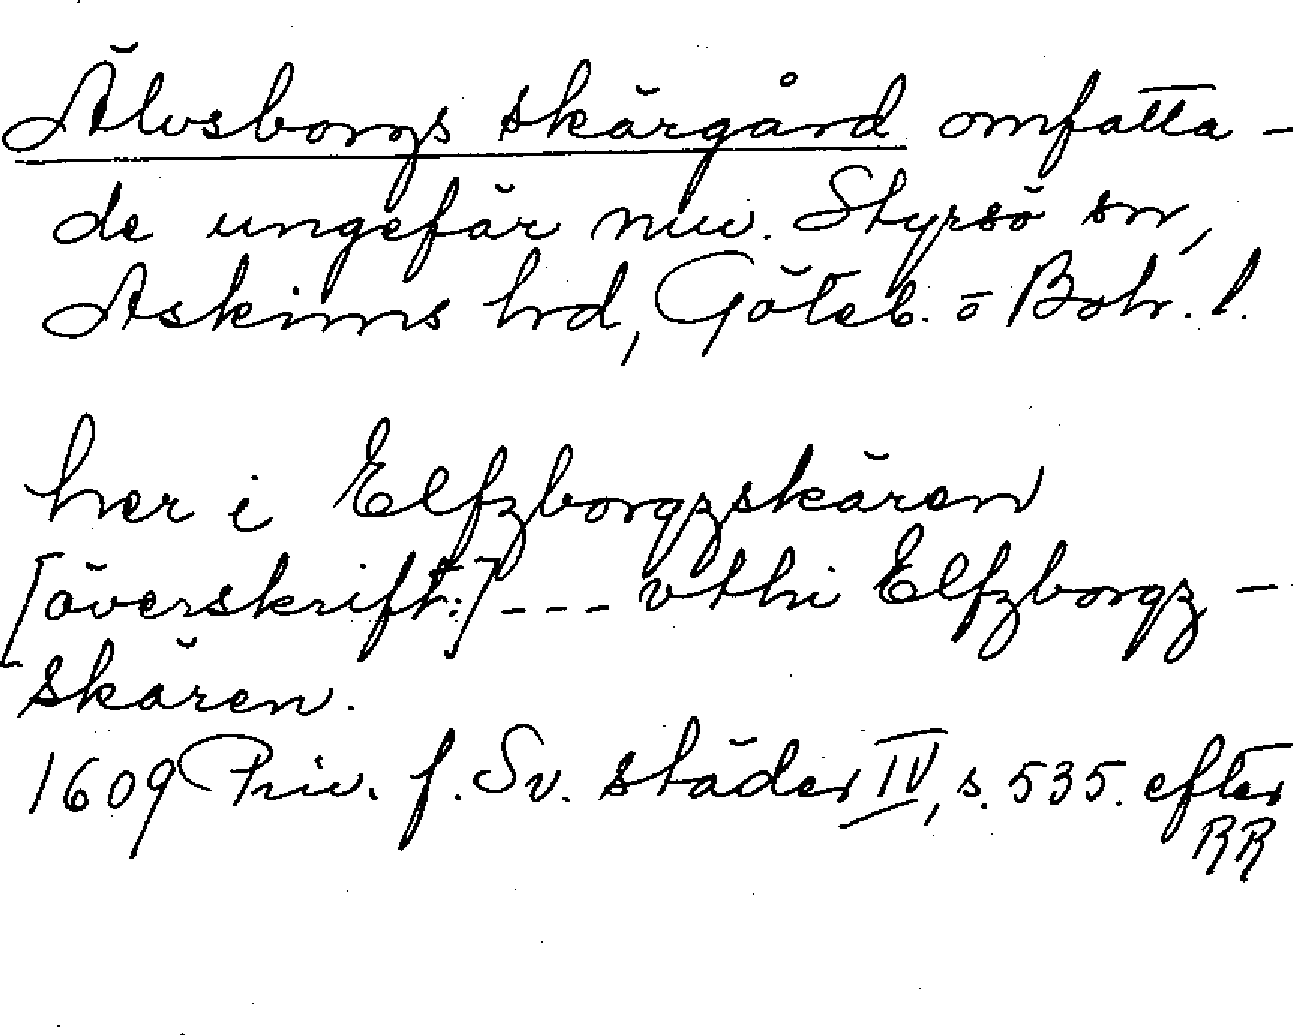 Älvsborgs skärgård omfatta-
de ungefär nuv. Styrsö sn,
Askims hrd, Göteb. o Boh. l.
her i Elfzborgzskären
[överskrift:] --- vthi Elfzborgz-
skären.
1609 Priv. f. Sv. städer IV, s. 535. efter
RR